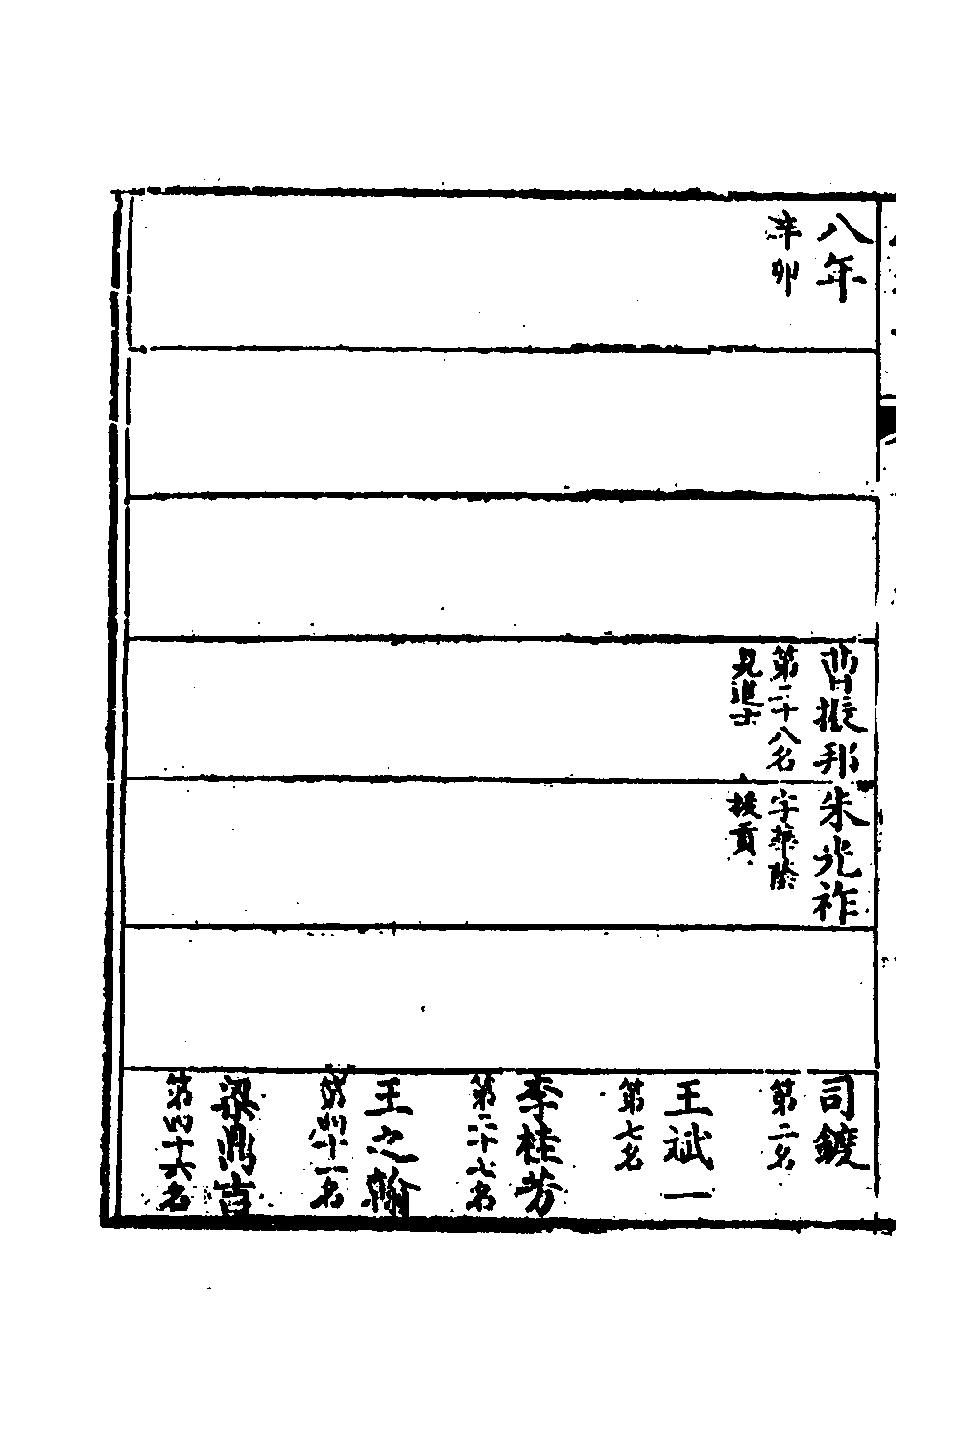 八年
辛卯
曹振邦
第二十八名
見進士
朱光祚
字華陰
拔貢
司鍍
第二名
王斌一
第七名
李桂芳
第二十六名
王之翰
第四十一名
梁鼎吉
第四十六名